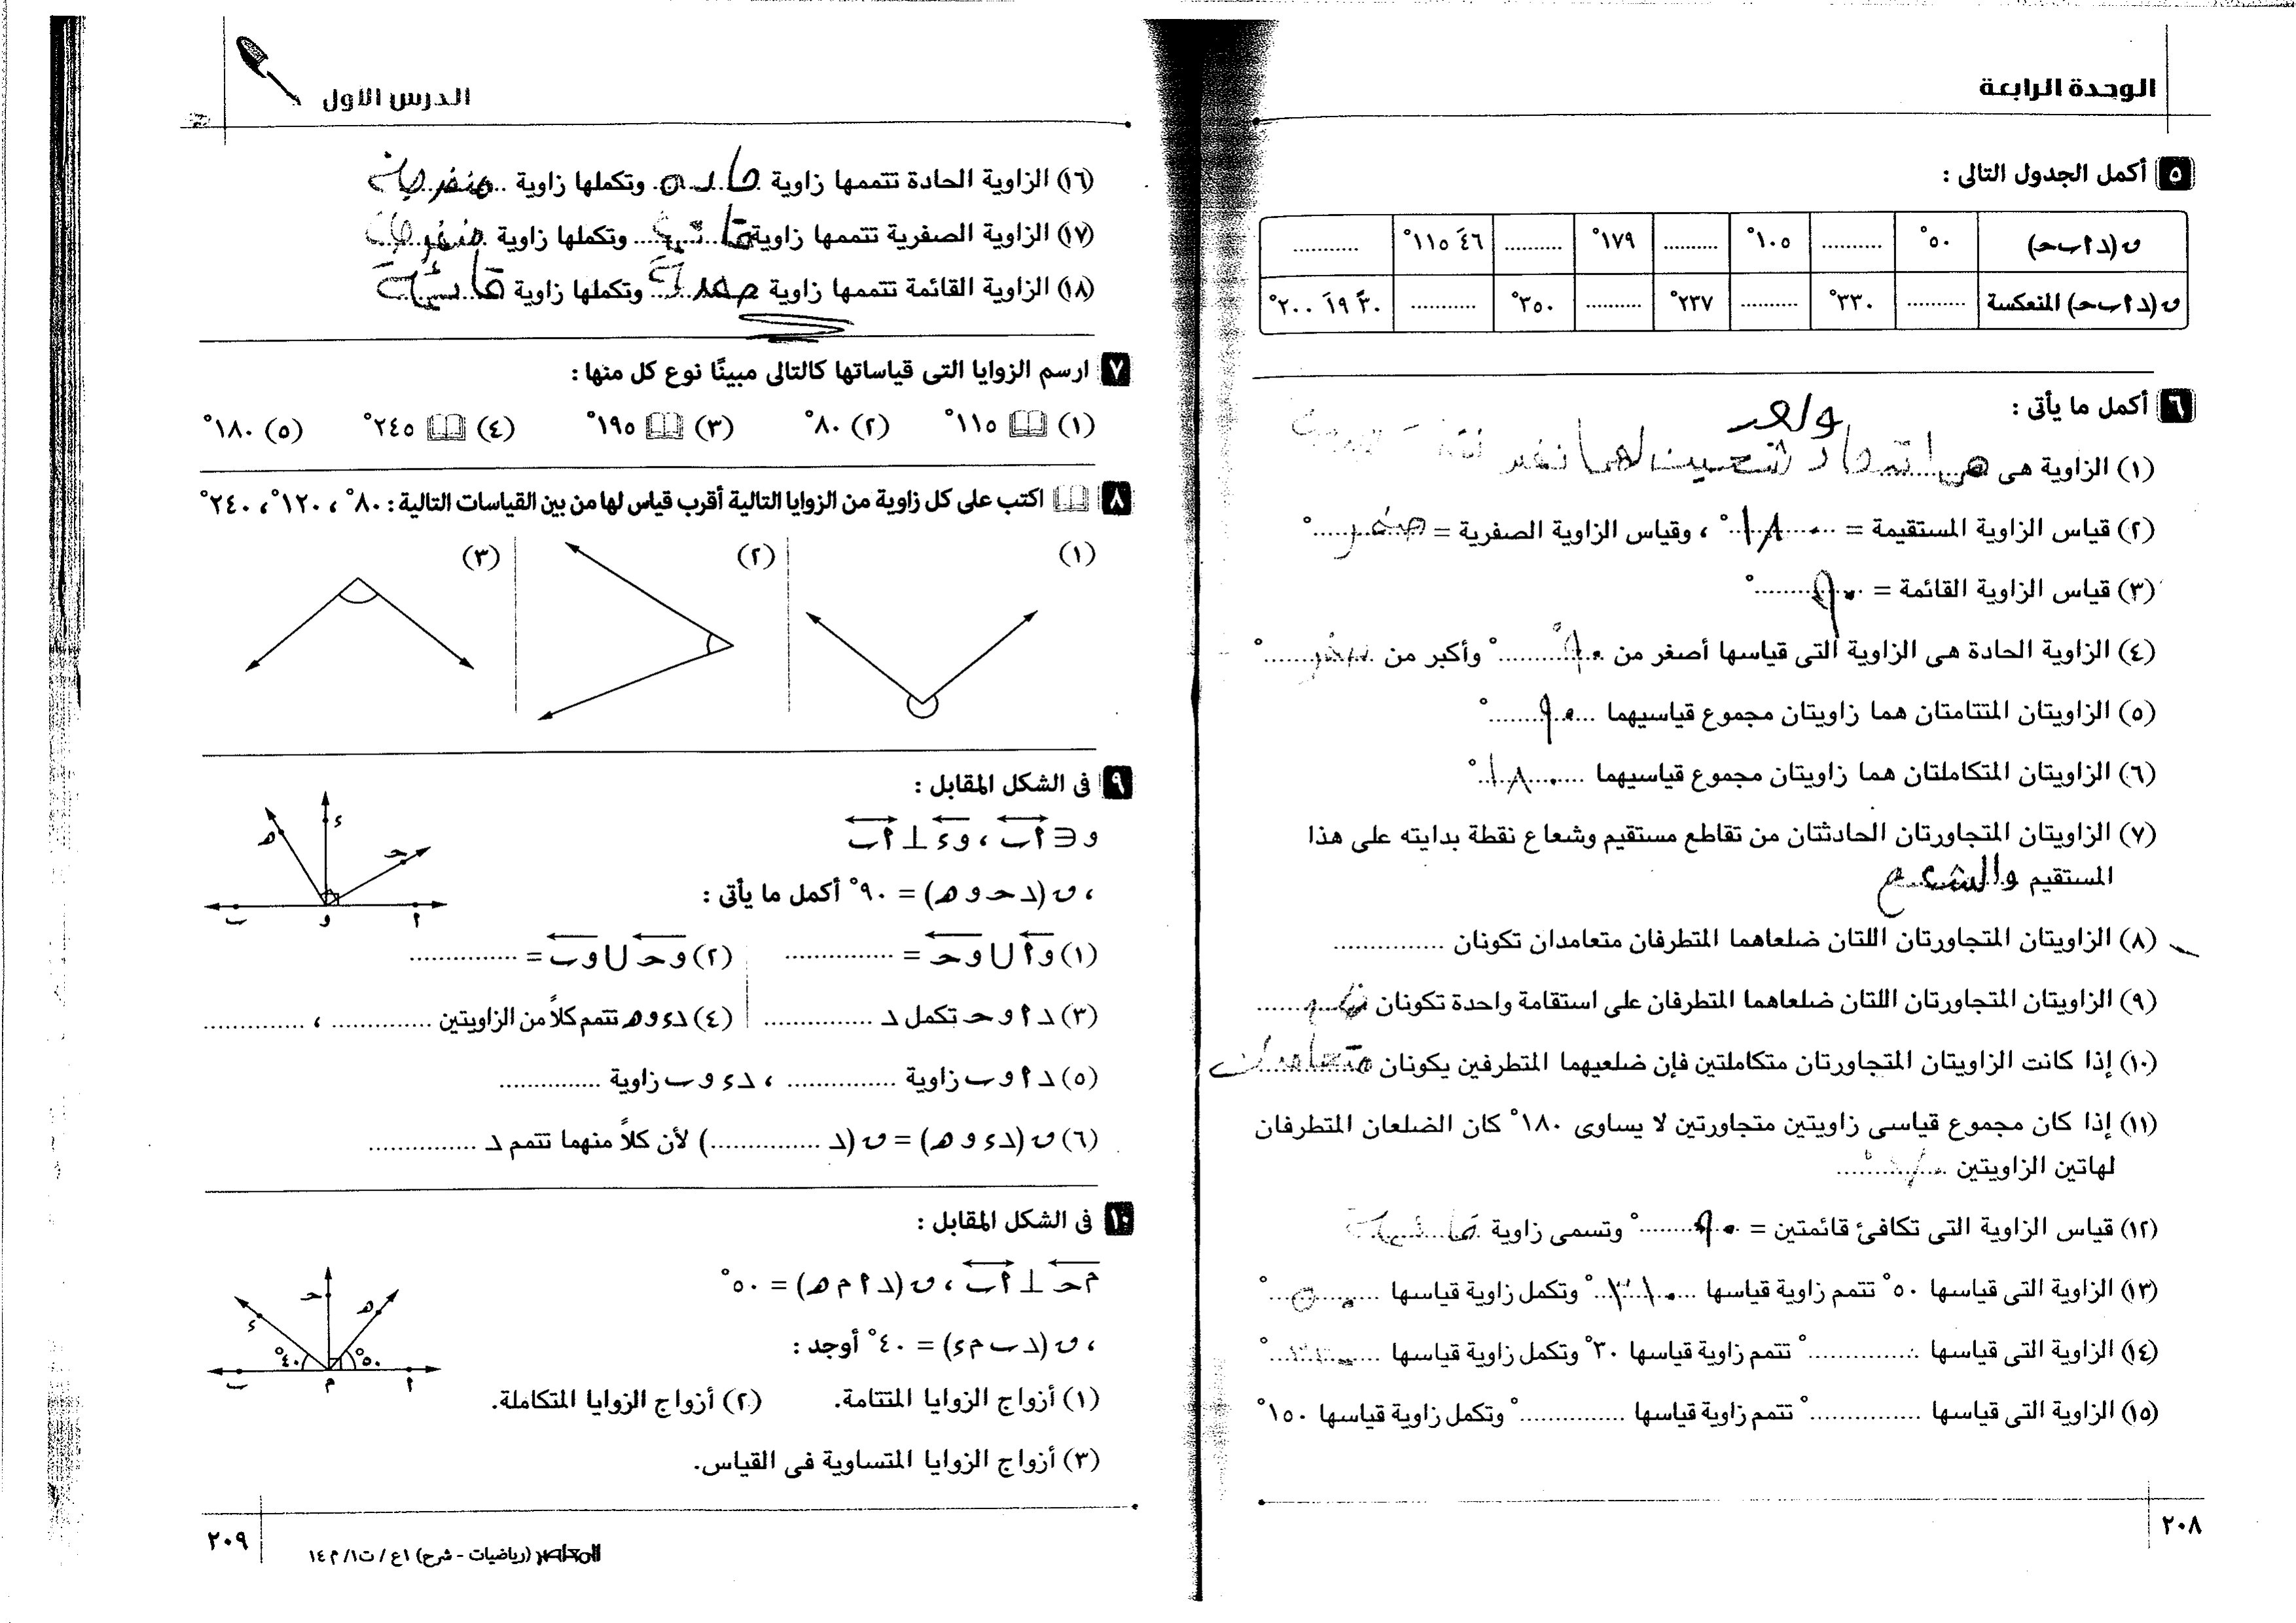 الوحدة الرابعة
٥ أكمل الجدول التالى :
ق (د ا ب حـ) ٥٠° .......... ١٠٥° .......... ١٧٩° .......... ٤٦ َ ١١٥° ..........
ق (د ا ب حـ) المنعكسة .......... ٣٣٠° .......... ٢٣٧° .......... ٣٥٠° .......... ٣٠ ً ١٩ َ ٢٠٠°
٦ أكمل ما يأتى :
واحد
(١) الزاوية هى هى اتحاد شعاعين لهما نفس
(٢) قياس الزاوية المستقيمة = ١٨٠° ، وقياس الزاوية الصفرية = صفر°
(٣) قياس الزاوية القائمة = ٩٠°
(٤) الزاوية الحادة هى الزاوية التى قياسها أصغر من ٩٠° وأكبر من صفر°
(٥) الزاويتان المتتامتان هما زاويتان مجموع قياسيهما ٩٠°
(٦) الزاويتان المتكاملتان هما زاويتان مجموع قياسيهما ١٨٠°
(٧) الزاويتان المتجاورتان الحادثتان من تقاطع مستقيم وشعاع نقطة بدايته على هذا
المستقيم والشعاع
(٨) الزاويتان المتجاورتان اللتان ضلعاهما المتطرفان متعامدان تكونان ...............
(٩) الزاويتان المتجاورتان اللتان ضلعاهما المتطرفان على استقامة واحدة تكونان
(١٠) إذا كانت الزاويتان المتجاورتان متكاملتين فإن ضلعيهما المتطرفين يكونان متعامدان
(١١) إذا كان مجموع قياسى زاويتين متجاورتين لا يساوى ١٨٠° كان الضلعان المتطرفان
لهاتين الزاويتين
(١٢) قياس الزاوية التى تكافئ قائمتين = ٩٠° وتسمى زاوية قائمة
(١٣) الزاوية التى قياسها ٥٠° تتمم زاوية قياسها ...............° وتكمل زاوية قياسها ...............°
(١٤) الزاوية التى قياسها ...............° تتمم زاوية قياسها ٣٠° وتكمل زاوية قياسها ...............°
(١٥) الزاوية التى قياسها ...............° تتمم زاوية قياسها ...............° وتكمل زاوية قياسها ١٥٠°
٢٠٨
الدرس الأول
(١٦) الزاوية الحادة تتممها زاوية حاده وتكملها زاوية منفرجة
(١٧) الزاوية الصفرية تتممها زاوية قائمة وتكملها زاوية منفرجة
(١٨) الزاوية القائمة تتممها زاوية صفرية وتكملها زاوية قائمة
٧ ارسم الزوايا التى قياساتها كالتالى مبينًا نوع كل منها :
(١) ١١٥° (٢) ٨٠° (٣) ١٩٥° (٤) ٢٤٥° (٥) ١٨٠°
٨ اكتب على كل زاوية من الزوايا التالية أقرب قياس لها من بين القياسات التالية : ٨٠° ، ١٢٠° ، ٢٤٠°
(١) (٢) (٣)
٩ فى الشكل المقابل :
و ∈ ا ب ، و ء ⊥ ا ب
، ق (د حـ و هـ) = ٩٠° أكمل ما يأتى :
ء هـ حـ ب و ا
(١) و ا ∪ و حـ = ............... (٢) و حـ ∪ و ب = ...............
(٣) د ا و حـ تكمل د ............... (٤) د ء و هـ تتمم كلاً من الزاويتين ............... ، ...............
(٥) د ا و ب زاوية ............... ، د ء و ب زاوية ...............
(٦) ق (د ء و هـ) = ق (د ...............) لأن كلاً منهما تتمم د ...............
١٠ فى الشكل المقابل :
م حـ ⊥ ا ب ، ق (د ا م هـ) = ٥٠°
، ق (د ب م ء) = ٤٠° أوجد :
حـ هـ ء ٤٠° ٥٠° ب م ا
(١) أزواج الزوايا المتتامة. (٢) أزواج الزوايا المتكاملة.
(٣) أزواج الزوايا المتساوية فى القياس.
المعاصر (رياضيات - شرح) ١ع / ت١/ م ١٤
٢٠٩